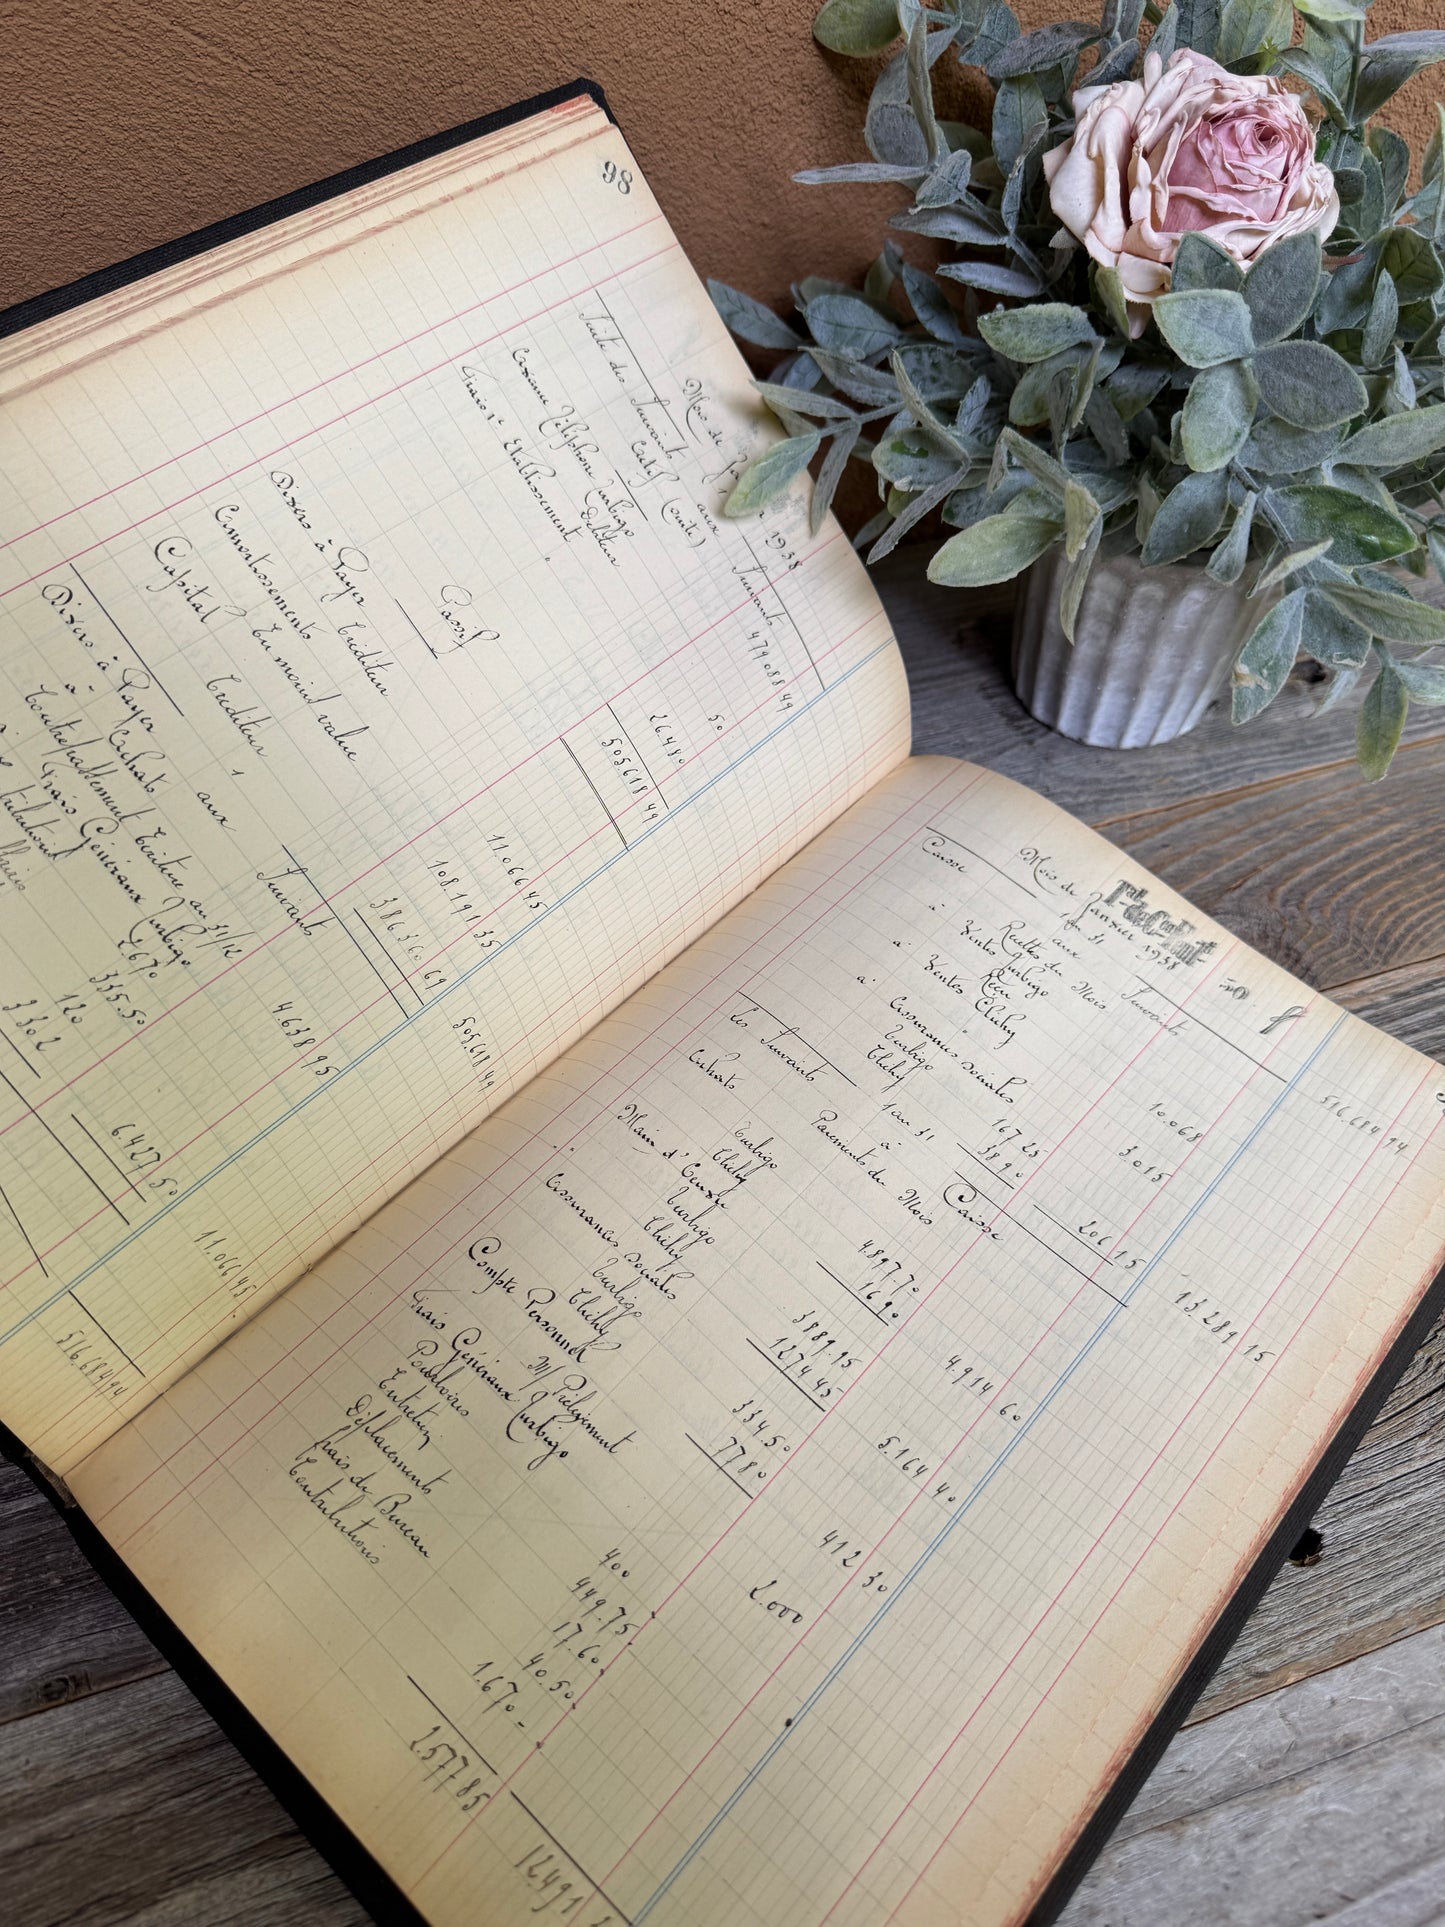 98
Mois de Janvier 1938
Suivants 479 088 49
Suite des Suivants aux
Actif (suite)
Téléphone Turbigo Débiteur 50
Frais 1er Etablissement " 26.480
505 618 49
Passif
Divers à Payer Créditeur 11.066 45
Amortissements En moins value 108.191 35
Capital Créditeur 386 360 69
505.618 49
1
Divers à Payer aux Suivants
à Achats 4.638 95
à Contrepassement Ecriture au 31/12
Frais Généraux Turbigo
2.670
335.50
120
330 2
6.427 50
11.066 45
516.684 94
Tal de Commt
50 
Mois de Janvier 1938
516.684 94
1 au 31
Caisse aux Suivants
Recettes du Mois
à Ventes Turbigo 10.068
à Ventes Clichy 3.015
à Assurances sociales
Turbigo 167 25
Clichy 38 90
206 15
13.289 15
1 au 31
Les Suivants à Caisse
Paiements du Mois
Achats Turbigo 4.897.70
Clichy 16 90
4.914 60
Main d'Œuvre
Turbigo 3889.95
Clichy 1274 45
5.164 40
Assurances sociales
Turbigo 334.50
Clichy 77 80
412 30
Compte Personnel
M/ Prélèvement 2.000
Frais Généraux Turbigo
Pourboires 400
Entretien 449.75
Déplacements 17.60
Frais de Bureau 40.50
Contributions 1.670 -
2.577 85
12.491